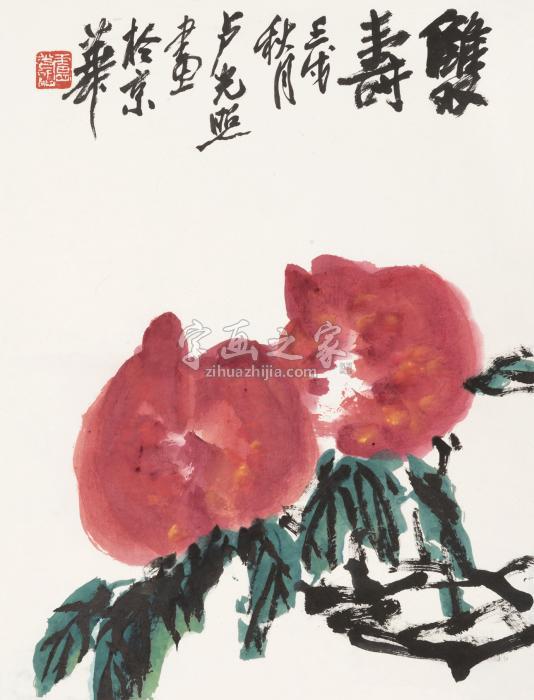 雙
壽
壬戌
秋月
卢光照
畫
於京
華
字画之家
zihuazhijia.com